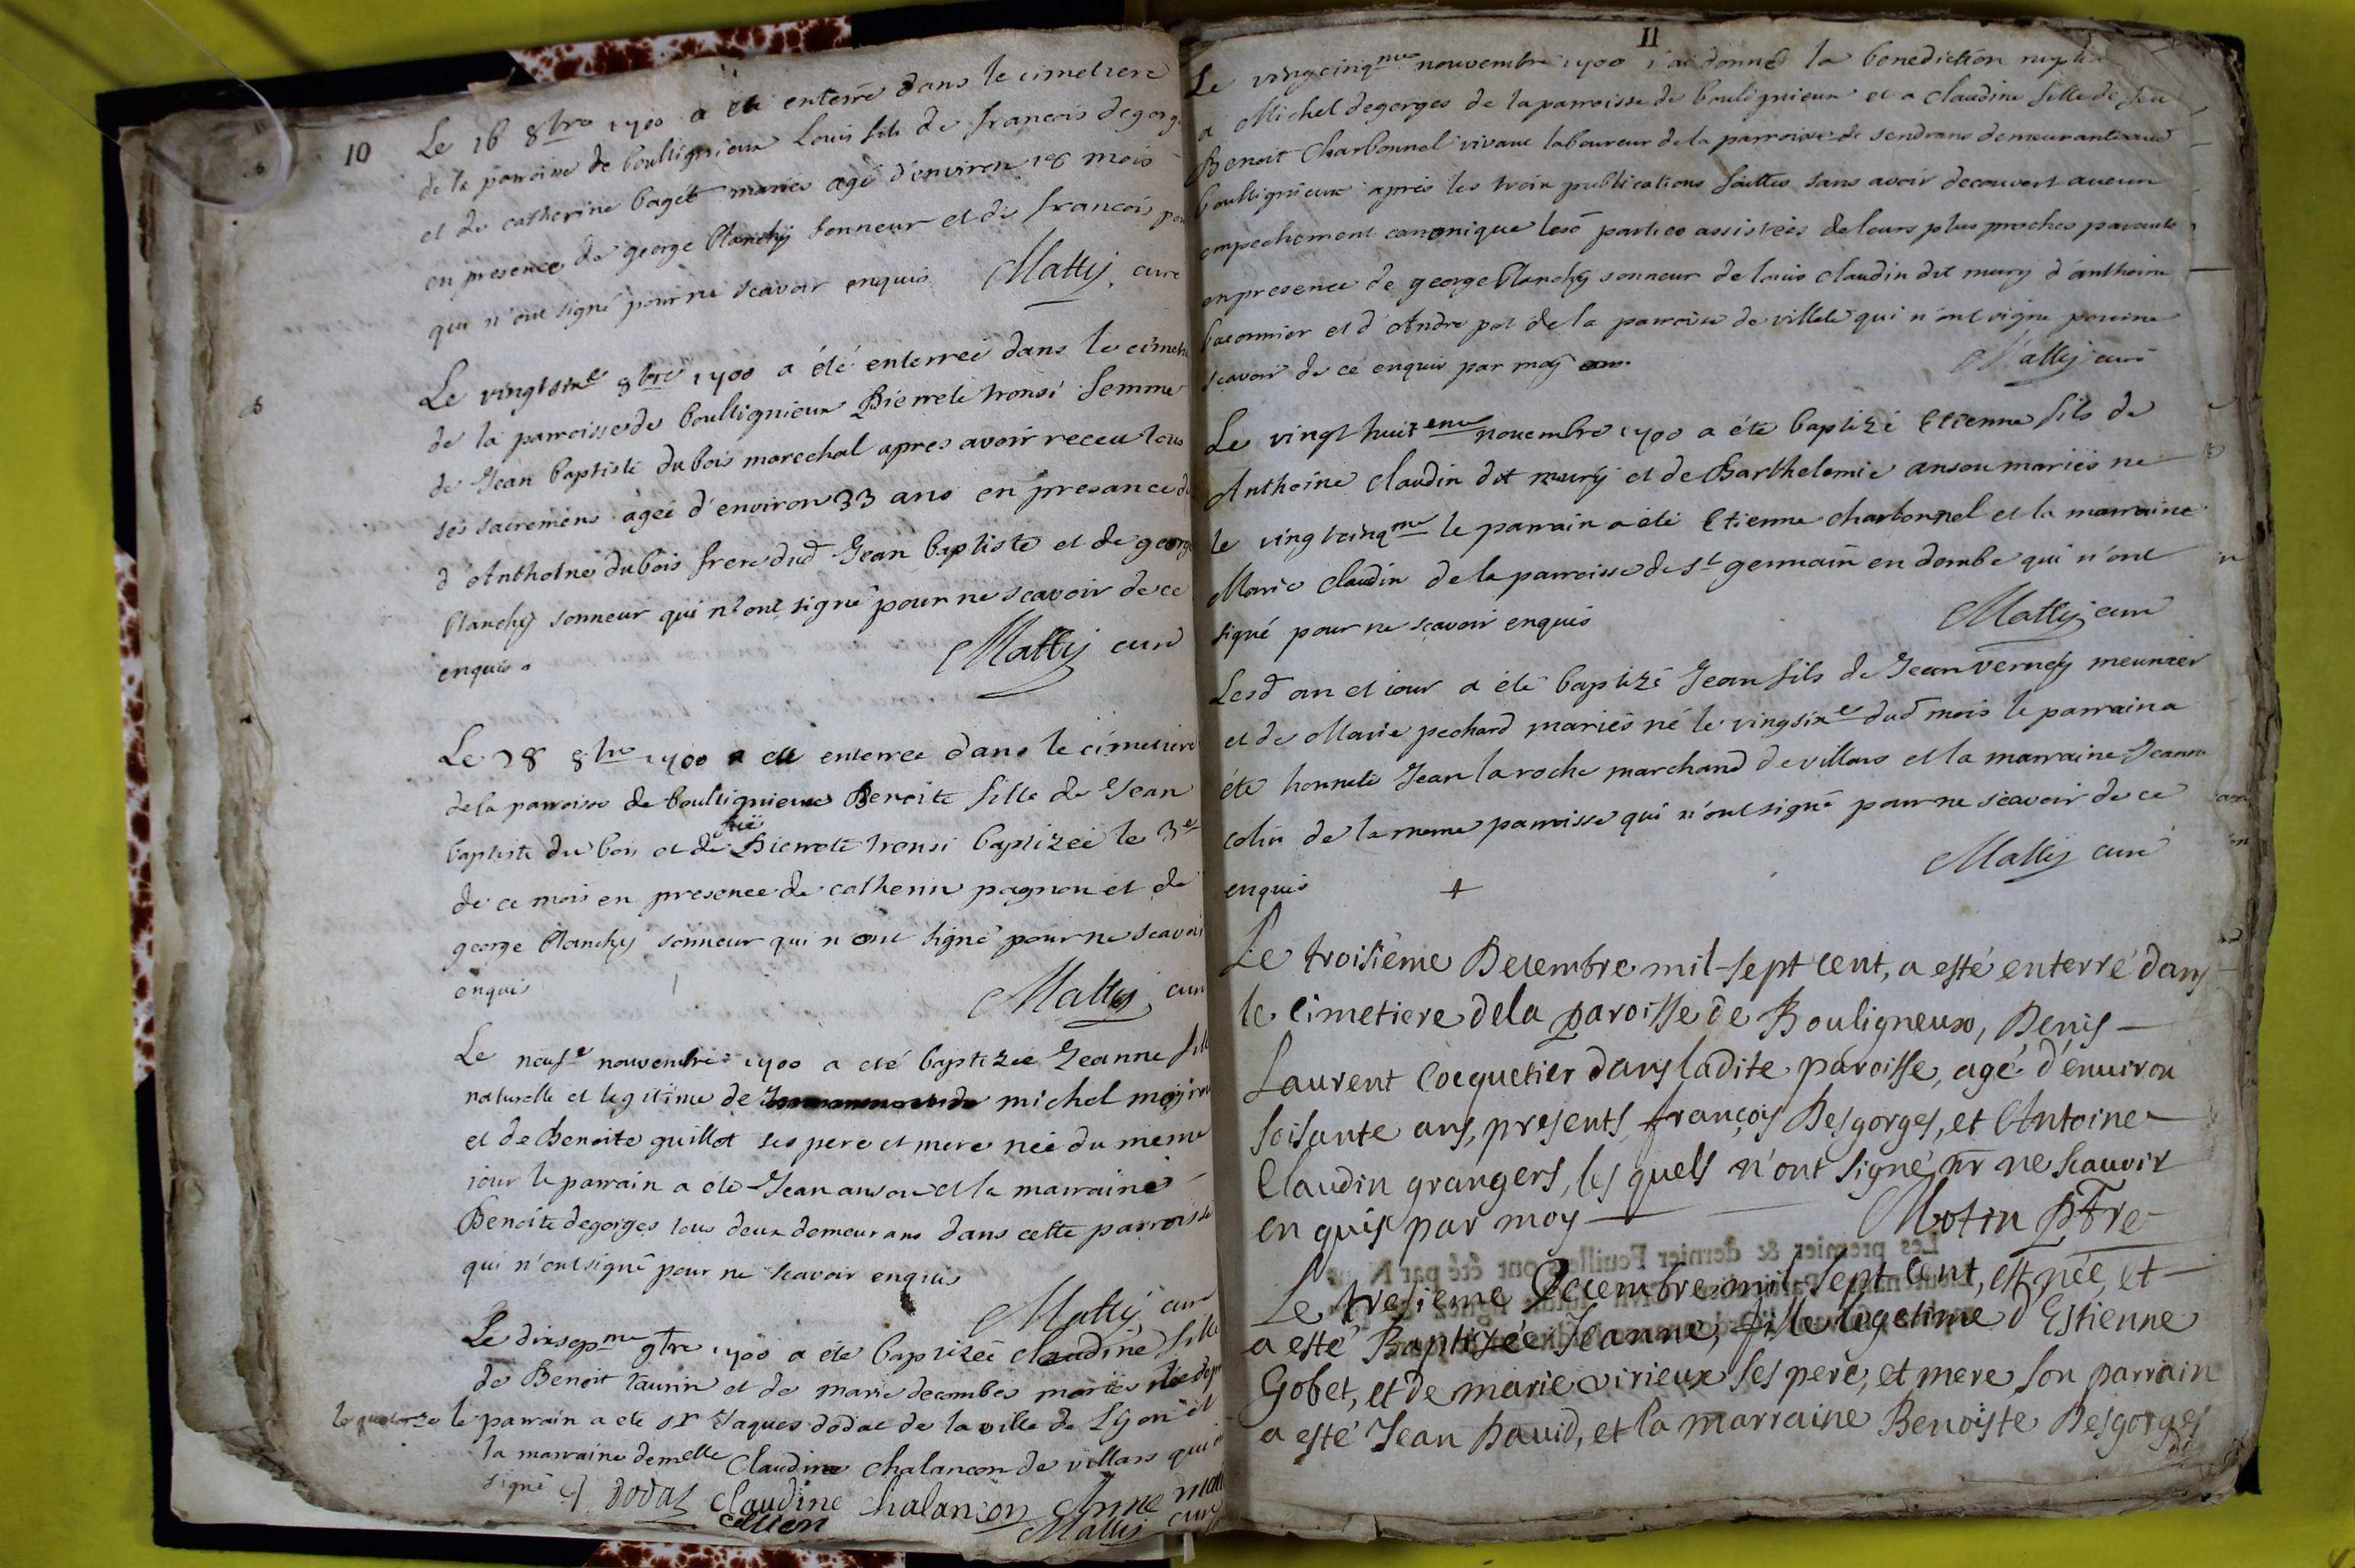 10
Le 16 8bre 1700 a été enterré dans le cimetiere
de la parroisse de boulligneux Louis fils de francois degorge
et de catherine baget mariés agé d'environ 18 mois
en presence de george Planchy sonneur et de francois
qui n'ont signé pour ne scavoir enquis Mattij curé
Le vingtsixe 8bre 1700 a été enterreé dans le cimeti
de la parroisse de boullignieux Pierrete tronsi femme
de Jean baptiste dubois marechal apres avoir receu tous
ses sacremens ageé d'environ 33 ans en presance de
d'Anthoine dubois frere dud Jean baptiste et de george
Planchy sonneur qui n'ont signé pour ne scavoir de ce
enquis Mattij curé
Le 28 8bre 1700 a été enterreé dans le cimetiere
de la parroisse de boullignieux Benoite fille de Jean
baptiste du bois et de fuë Pierrete tronsi baptizeé le 3e
de ce mois en presence de catherin pagnon et de
george Planchy sonneur qui n'ont signé pour ne scavoi
enquis Mattij curé
Le neufe nouvembre 1700 a été baptizeé Jeanne fille
naturelle et legitime de michel
et de Benoite guillot ses pere et mere neé du meme
iour le parrain a été Jean anson et la marraine
Benoite degorges tous deux demeurans dans cette parroisse
qui n'ont signé pour ne scavoir enquis
Mattij curé
Le dixsepme 9bre 1700 a été baptizeé claudine fille
de Benoit taurin et de marie decombes mariés neé
le quatorze le parrain a été sr Jaques dodat de la ville de Lyon et
la marraine demelle Claudine chalancon de villars qui
signé Dodat Claudine Chalancon Anne
Mattij curé
11
Le vingcinqme nouvembre 1700 i'ai donné la benediction
a Michel degorges de la parroisse de boulignieux et a claudine fille de feu
Benoit Charbonnel vivant laboureur de la parroisse de sendrans demeurante aud
boullignieux apres les trois publications faittes sans avoir decouvert aucun
empechement canonique lesd parties assisteés de leurs plus proches parants
en presence de george Planchy sonneur de louis claudin dit mury d'anthoine
baconnier et d'Andre pot de la parroisse de villete qui n'ont signé pour ne
scavoir de ce enquis par moy Mattij curé
Le vingt huiteme nouembre 1700 a été baptizé Etienne fils de
Anthoine claudin dit mury et de Barthelemie anson mariés né
le vingtcinqme le parrain a été Etienne charbonnel et la marraine
Marie claudin de la parroisse de st germain en dombe qui n'ont
signé pour ne scavoir enquis Mattij curé
Lesd an et iour a été baptizé Jean fils de Jean verney meunier
et de Marie pechard mariés né le vingsixe dud mois le parrain a
été honnete Jean la roche marchand de villars et la marraine Jeanne
colin de la meme parroisse qui n'ont signé pour ne scavoir de ce
enquis Mattij curé
Le troisième Decembre mil-sept cent, a esté enterré dans
le cimetiere de la paroisse de Bouligneux, Denis
Laurent Cocquetier dans ladite paroisse, agé d'enuiron
soisante ans, presents françois Desgorges, et Antoine
Claudin grangers, les quels n'ont signé, pr ne scauoir
enquis par moy Motin ptre
Le tresieme Decembre mil sept cent, est née, et
a esté Baptizée Jeanne, fille legetime d'Estienne
Gobet, et de marie virieux ses pere, et mere son parrain
a esté Jean Dauid, et la marraine Benoiste Desgorges